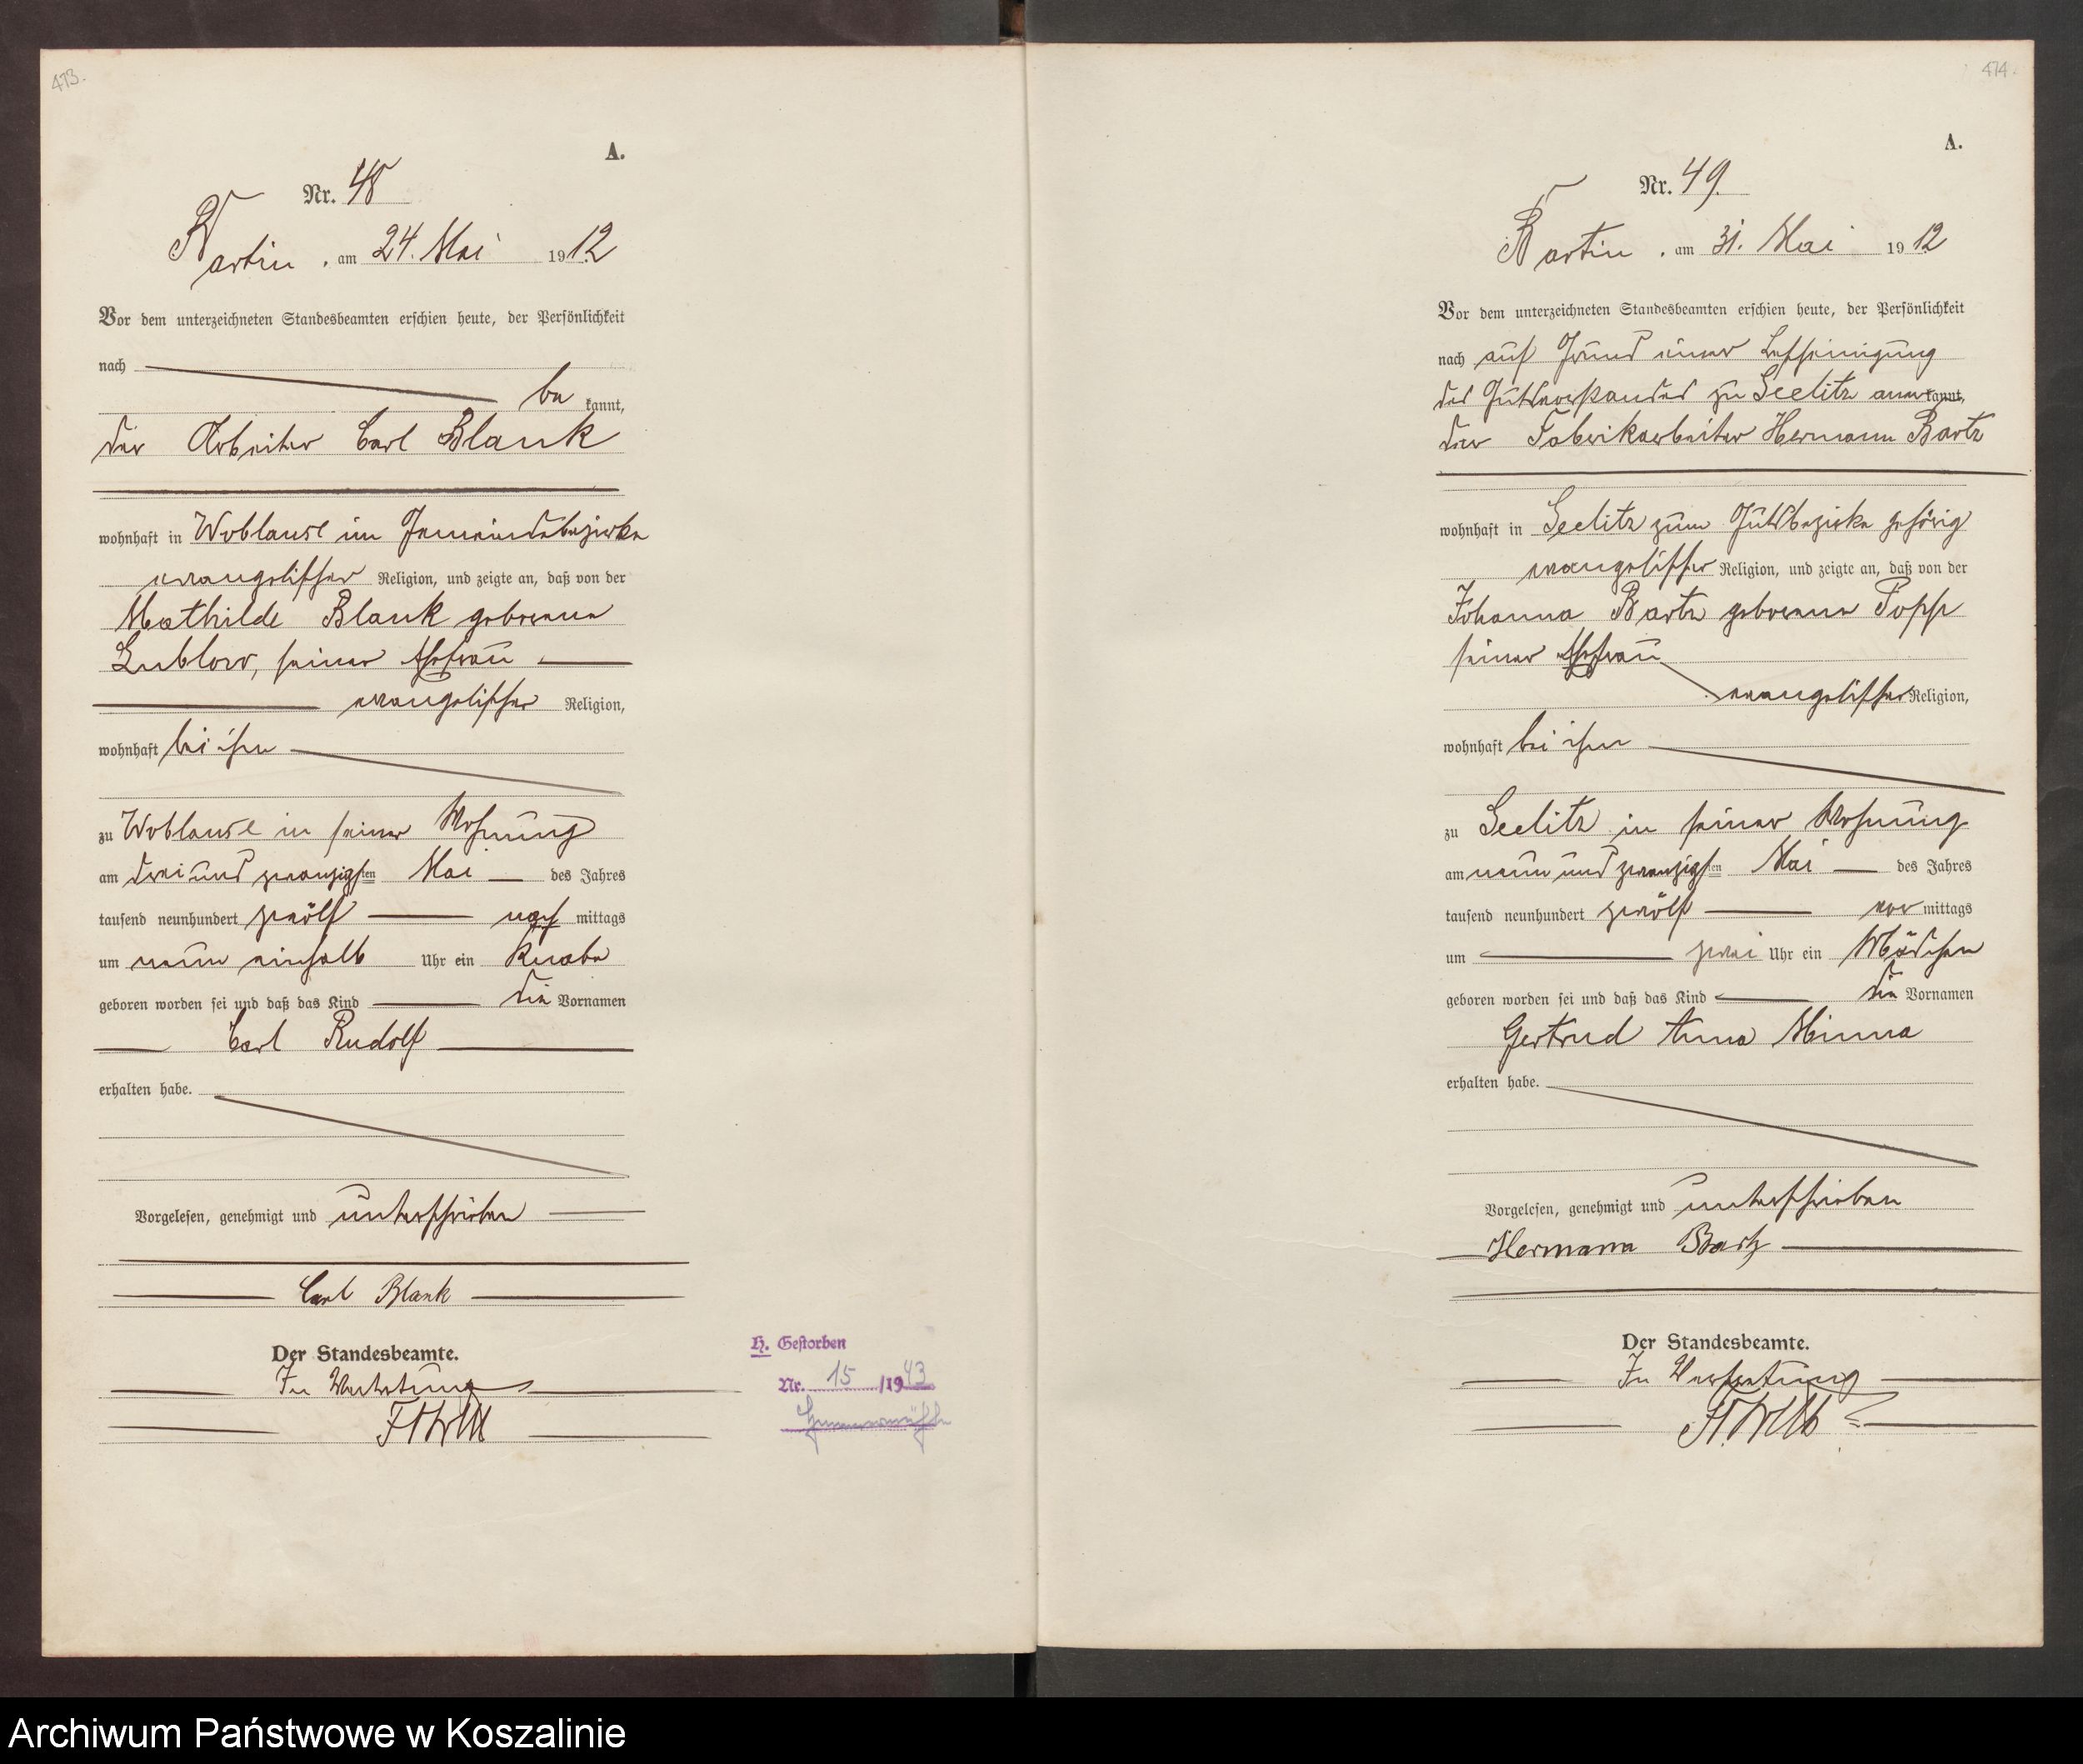 473.
A.
Nr. 48
Bartin, am 24. Mai 1912
Vor dem unterzeichneten Standesbeamten erschien heute, der Persönlichkeit
nach
be kannt,
der Arbeiter Carl Blank
wohnhaft in Woblanse im Gemeindebezirke
evangelischer Religion, und zeigte an, daß von der
Mathilde Blank geborene
Lublow, seiner Ehefrau
evangelischer Religion,
wohnhaft bei ihm
zu Woblanse in seiner Wohnung
am drei und zwanzigsten Mai des Jahres
tausend neunhundert zwölf nach mittags
um neun einhalb Uhr ein Knabe
geboren worden sei und daß das Kind die Vornamen
Carl Rudolf
erhalten habe.
Vorgelesen, genehmigt und unterschrieben
Carl Blank
Der Standesbeamte.
In Vertretung
H. Gestorben
Nr. 15 /1943
474.
A.
Nr. 49.
Bartin, am 31. Mai 1912
Vor dem unterzeichneten Standesbeamten erschien heute, der Persönlichkeit
nach auf Grund einer Bescheinigung
des Gutsvorstandes zu Seelitz anerkannt,
der Fabrikarbeiter Hermann Bartz
wohnhaft in Seelitz zum Gutsbezirke gehörig
evangelischer Religion, und zeigte an, daß von der
Johanna Bartz geborene Popp
seiner Ehefrau
evangelischer Religion,
wohnhaft bei ihm
zu Seelitz in seiner Wohnung
am neun und zwanzigsten Mai des Jahres
tausend neunhundert zwölf vor mittags
um zwei Uhr ein Mädchen
geboren worden sei und daß das Kind die Vornamen
Gertrud Anna Minna
erhalten habe.
Vorgelesen, genehmigt und unterschrieben
Hermann Bartz
Der Standesbeamte.
In Vertretung
Archiwum Państwowe w Koszalinie